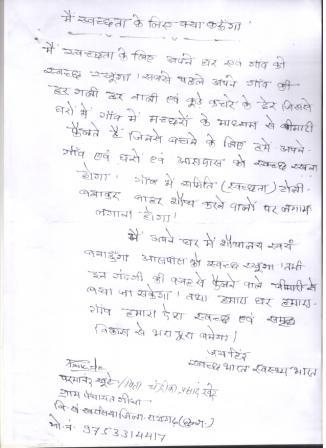 मैं स्वच्छता के लिए क्या करूंगा
मैं स्वच्छता के लिए अपने घर एवं गांव को
स्वच्छ रखूंगा। सबसे पहले अपने गांव की
हर गली हर नाली एवं कूड़े कचरे के ढेर जिससे
घरों में गांव में मच्छरों के माध्यम से बीमारी
फैलते हैं जिनसे बचने के लिए हमें अपने
गांव एवं घरों एवं आसपास को स्वच्छ रखना
होगा। गांव में समिति (स्वच्छता) टोली
बनाकर बाहर शौच करने वालों पर लगाम
लगाना होगा।
मैं अपने घर में शौचालय स्वयं
बनाऊंगा आसपास को स्वच्छ रखूंगा। तभी
इन गंदगी की वजह से फैलने वाले बीमारी से
बचा जा सकेगा। तथा हमारा घर हमारा
गांव हमारा देश स्वच्छ एवं समृद्ध
विकास से भरा पूरा बनेगा।
जय हिंद
स्वच्छ भारत स्वस्थ भारत
ग्राम पंचायत
मो. नं. 9753314417